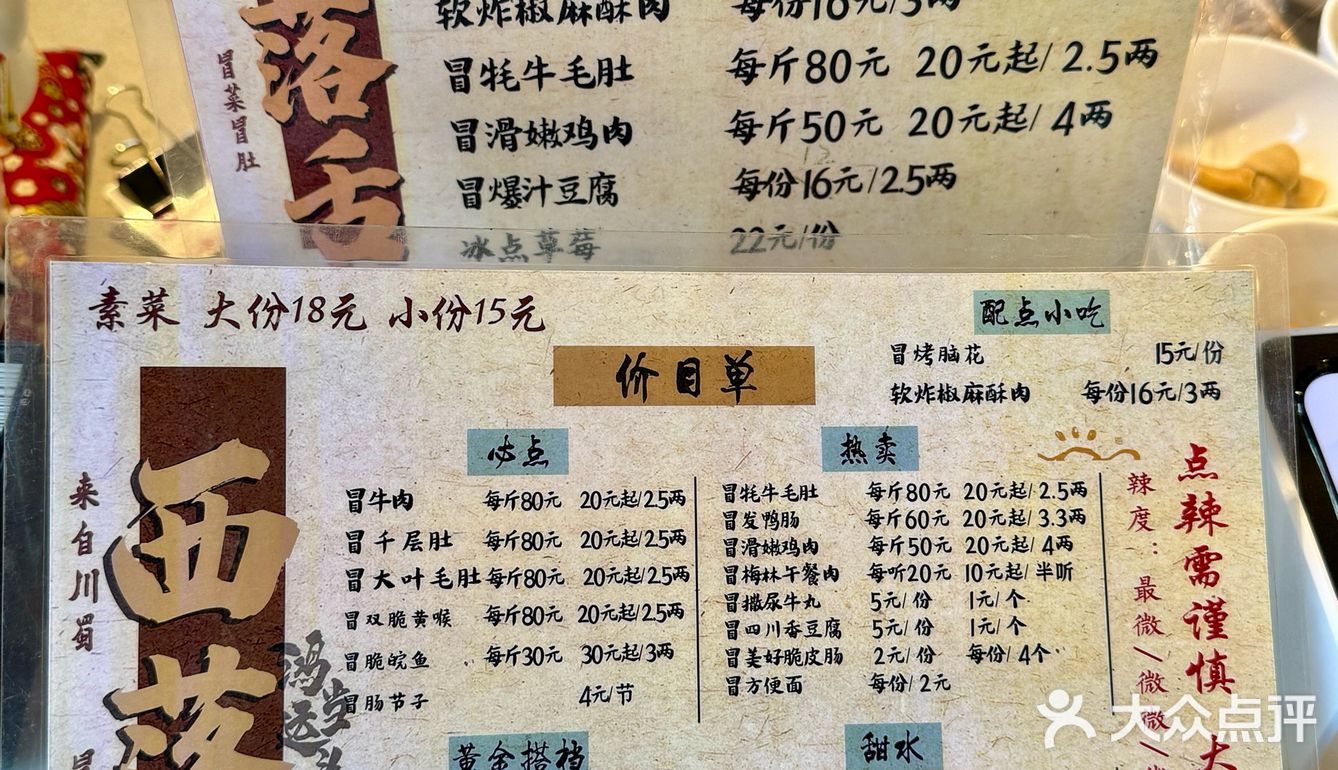 软炸椒麻酥肉 每份16元/3两
冒牦牛毛肚 每斤80元 20元起/2.5两
冒滑嫩鸡肉 每斤50元 20元起/4两
冒爆汁豆腐 每份16元/2.5两
冰点草莓 22元/份
落舌
冒菜冒肚
素菜 大份18元 小份15元
价目单
配点小吃
冒烤脑花 15元/份
软炸椒麻酥肉 每份16元/3两
必点
冒牛肉 每斤80元 20元起/2.5两
冒千层肚 每斤80元 20元起/2.5两
冒大叶毛肚 每斤80元 20元起/2.5两
冒双脆黄喉 每斤80元 20元起/2.5两
冒脆皖鱼 每斤30元 30元起/3两
冒肠节子 4元/节
热卖
冒牦牛毛肚 每斤80元 20元起/2.5两
冒发鸭肠 每斤60元 20元起/3.3两
冒滑嫩鸡肉 每斤50元 20元起/4两
冒梅林午餐肉 每听20元 10元起/半听
冒撒尿牛丸 5元/份 1元/个
冒四川香豆腐 5元/份 1元/个
冒姜好脆皮肠 2元/份 每份/4个
冒方便面 每份/2元
黄金搭档
甜水
来自川蜀
西落
鸿运当头
点辣需谨慎
辣度：最微/微微/
大众点评